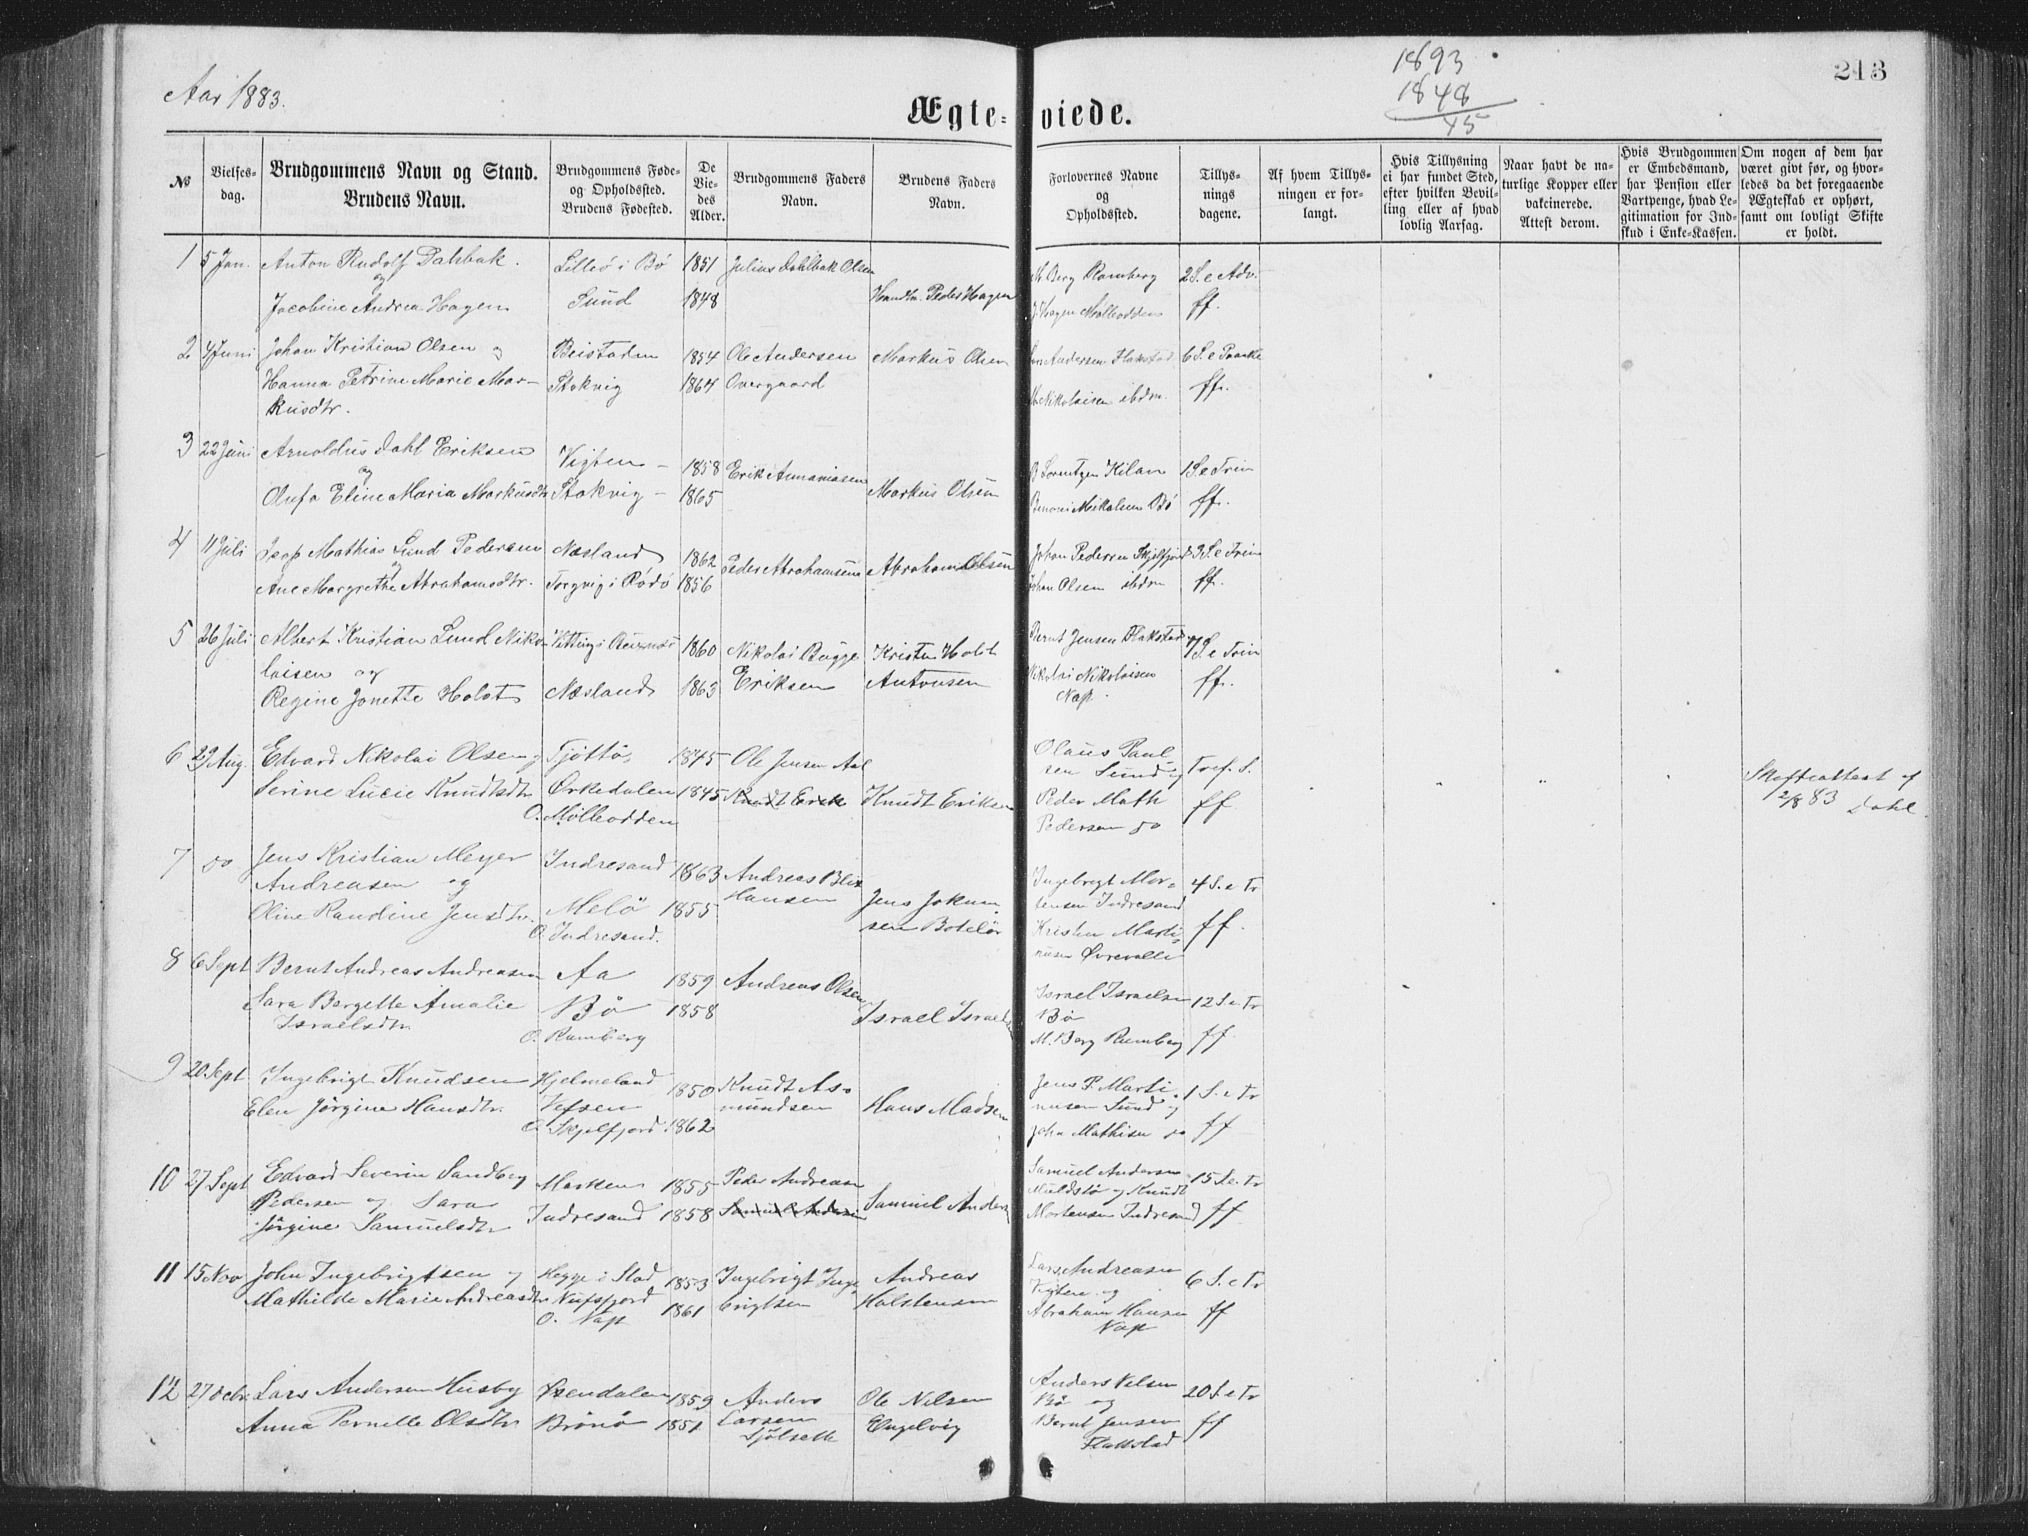 Aar 1883.
1893
1848
45
213
Ægteviede.
№
Vielses-
dag.
Brudgommens Navn og Stand.
Brudens Navn.
Brudgommens Føde-
og Opholdssted.
Brudens Fødested.
De
Vie-
des
Alder.
Brudgommens Faders
Navn.
Brudens Faders
Navn.
Forlovernes Navne
og
Opholdssted.
Tillys-
nings
dagene.
Af hvem Tillys-
ningen er for-
langt.
Hvis Tillysning
ei har fundet Sted,
efter hvilken Bevil-
ling eller af hvad
lovlig Aarsag.
Naar havt de na-
turlige Kopper eller
vakcinerede.
Attest derom.
Hvis Brudgommen
er Embedsmand,
har Pension eller
Vartpenge, hvad Le-
gitimation for Ind-
skud i Enke-Kassen.
Om nogen af dem har
været givt før, og hvor-
ledes da det foregaaende
Ægteskab er ophørt,
samt om lovligt Skifte
er holdt.
1 5 Jan. Anton Rudolf Dahbak og Lilleö i Bø 1851 Julius Dahlbak Olsen M. Berg Ramberg 2 S. e Adv.
Jacobine Andrea Hagen Sund 1848 Peder Hagen J. Hagen Mölleodden ff.
2 4 Juni Johan Kristian Olsen og Beistaden 1854 Ole Andersen Markus Olsen Andersen Flakstad 6 S. e Paaske
Hanna Petrine Marie Mar- Stokvig 1864 Overgaard Nikolaisen ibdm. ff.
kusdtr.
3 22 Juni Arnoldus Dahl Eriksen Vigten - 1858 Erik Annaniasen B Lorentzen Kilan 1 S. e Trin
og
Olufa Eline Maria Markusdtr Stokvig - 1865 Markus Olsen Benoni Mikalsen Bö ff.
4 11 Juli Mathias Lund Pedersen Næsland 1862 Peder Abrahamsen Abraham Olsen Johan Pedersen Skjelfjord 3 S. e Trin
og
Ane Margrethe Abrahamsdtr. Torgvig i Rödö 1856 Johan Olsen ibdm ff.
5 26 Juli Albert Kristian Lund Niko- 1860 Nikolai Bugge Kristen Holst Bernt Jensen Flakstad og 7 S. e Trin
laisen og
Regine Jonette Holst Næsland 1863 Eriksen Antonsen Nikolai Nikolaisen ff.
Nap.
6 29 Aug. Edvard Nikolai Olsen og Tjøttö 1845 Ole Jensen Aal Olaus Paul-
sen Sund og Tref. S.
Serine Lucie Knudtsdtr Örkedalen 1845 Knudt Erik Knudt Eriksen Peder Math ff
O. Mölleodden Pedersen do
Skifteattest af
2/8 83 Dahl.
7 do Jens Kristian Meyer Indresand 1863 Andreas Blix Ingebrigt Mor- 4 S. e Tr
Andreasen og Hansen tensen Indresand
Oline Randine Jensdtr. Melö 1855 Jens Jokum- Kristen Marti- ff.
O. Indresand. sen Bolelör nusen Övrevolle
8 6 Sept Bernt Andreas Andreasen Aa 1859 Andreas Olsen Israel Israelsen 12 S. e Tr
Sara Bergette Amalie Bö 1858 Israel Israelsen Bö
Israelsdtr O. Ramberg M. Berg Ramberg ff.
9 20 Sept Ingebrigt Knudsen Hjelmeland 1850 Knudt As- Jens P. Marti- 1 S. e Tr
Elen Jörgine Hansdtr. Vefsen mundsen Hans Madsen nusen Sund og
O. Skjelfjord 1862 John Mathisen do ff
10 27 Sept Edvard Severin Sandberg Marken 1855 Peder Andreasen Samuel Andersen 15 S. e Tr
Pedersen og Sara Indresand 1858 Samuel Andersen Samuel Anders og Knudt
Jörgine Samuelsdtr Mortensen Indresand ff
11 15 Nov John Ingebrigtsen og Hegge i Stod 1853 Ingebrigt Inge- Andreas Lars Andreasen 6 S. e Tr
Mathilde Marie Andreasdtr Nufsfjord 1861 brigtsen Halstensen Vigten og
O. Nap Abraham Hansen ff
Nap
12 27 Decbr. Lars Andersen Husby Öxendalen 1859 Anders Ole Nilsen Anders Nilsen 20 S. e Tr
Anna Pernille Olsdtr Brönö 1851 Larsen Engelvig Bö og
Sjölseth Bernt Jensen ff
Flakstad